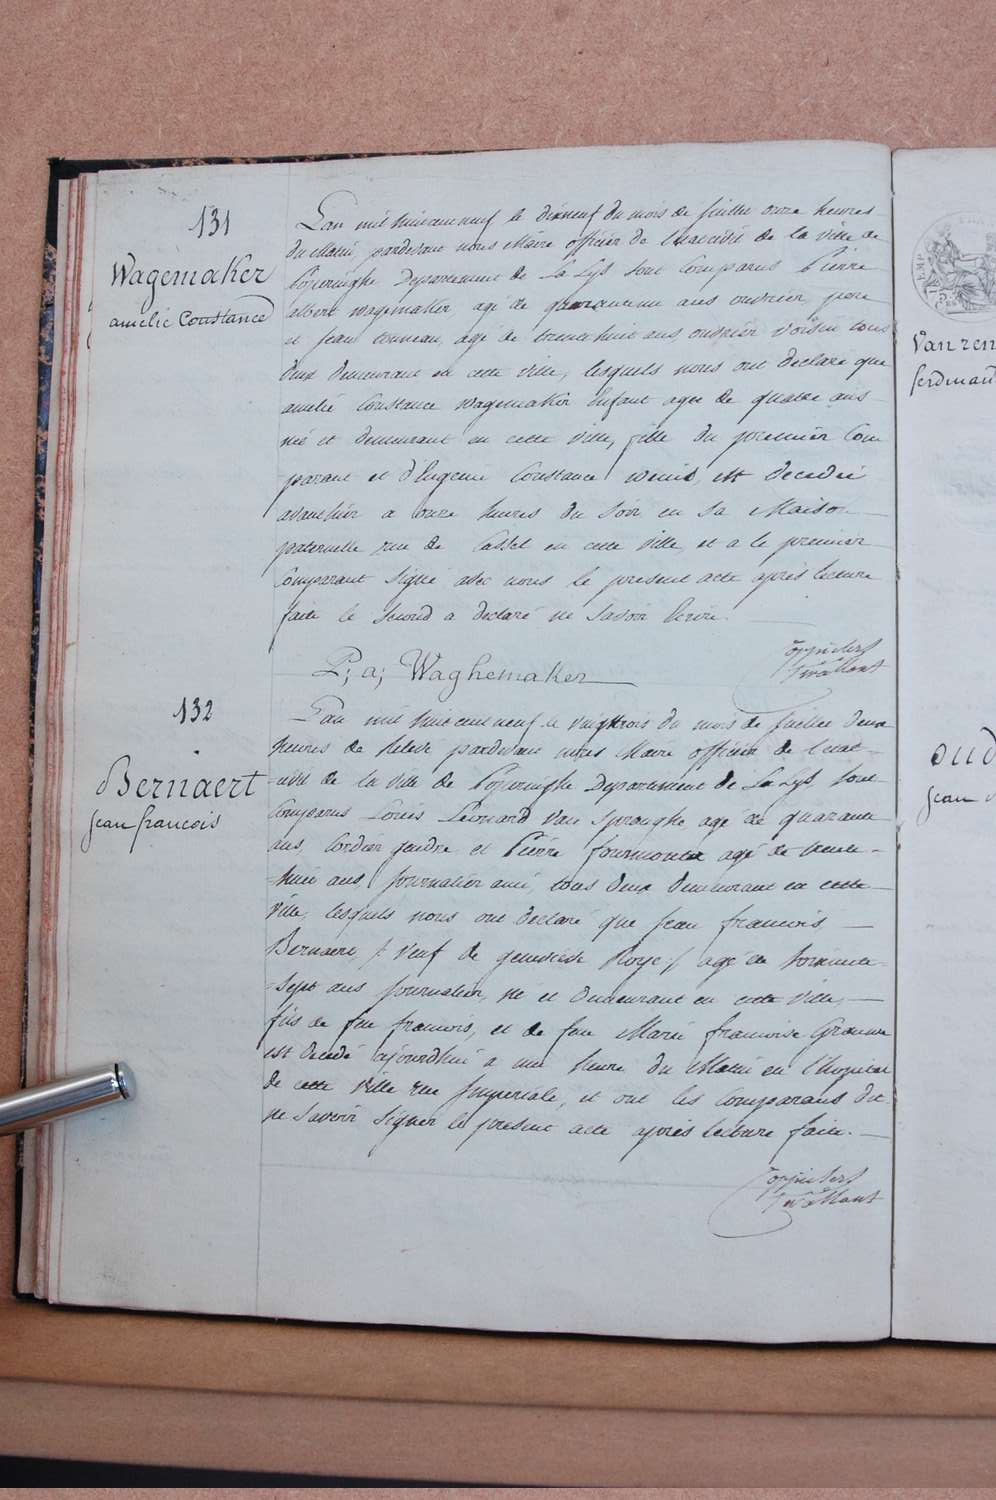 131
Wagemaker
amelie Constance
L'an mil huit cent neuf le dixneuf du mois de juillet onze heures
du Matin, pardevant nous Maire officier de l'Etat civil de la ville de
Poperinghe Departement de La Lys sont Comparus Pierre
albert wagemaker agé de quarante un ans ouvrier, pere
et jean tonneau, agé de trente huit ans, ouvrier voisin tous
deux demeurant en cette ville, lesquels nous ont declaré que
amelie Constance wagemaker Enfant agée de quatre ans
né et demeurant en cette ville, fille du premier Com
parant et d'Eugenie Constance est decedée
avant hier a onze heures du soir en sa Maison
paternelle rue de Cassel en cette ville, et a le premier
Comparant signé avec nous le present acte après lecture
faite le second a declaré ne savoir Ecrire.
P; a; Waghemaker
132
Bernaert
jean francois
L'an mil huit cent neuf le vingt trois du mois de juillet deux
heures de relevé pardevant nous Maire officier de l'etat
civil de la ville de Poperinghe Departement de La Lys, sont
Comparus Louis Léonard Van Sproughe agé de quarante
ans, Cordier gendre et Pierre agé de trente
huit ans journalier ami, tous deux demeurant en cette
ville, lesquels nous ont declaré que jean francois,
Bernaert /: veuf de genevieve Roye :/ agé de soixante
sept ans journalier, né et demeurant en cette ville,
fils de feu francois, et de feu Marie francoise
est decedé ajourdhui a une heure du Matin en l'hopital
de cette ville rue Imperiale, et ont les Comparans dit
ne savoir signer le present acte après lecture faite.
Van ren
ferdinand
oud
jean